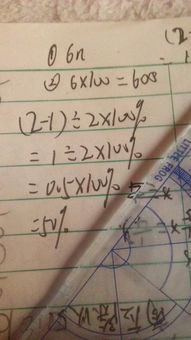 ① 6n
② 6×100=600
(2-1)÷2×100%
=1÷2×100%
=0.5×100%
=50%
LITTLE FROG